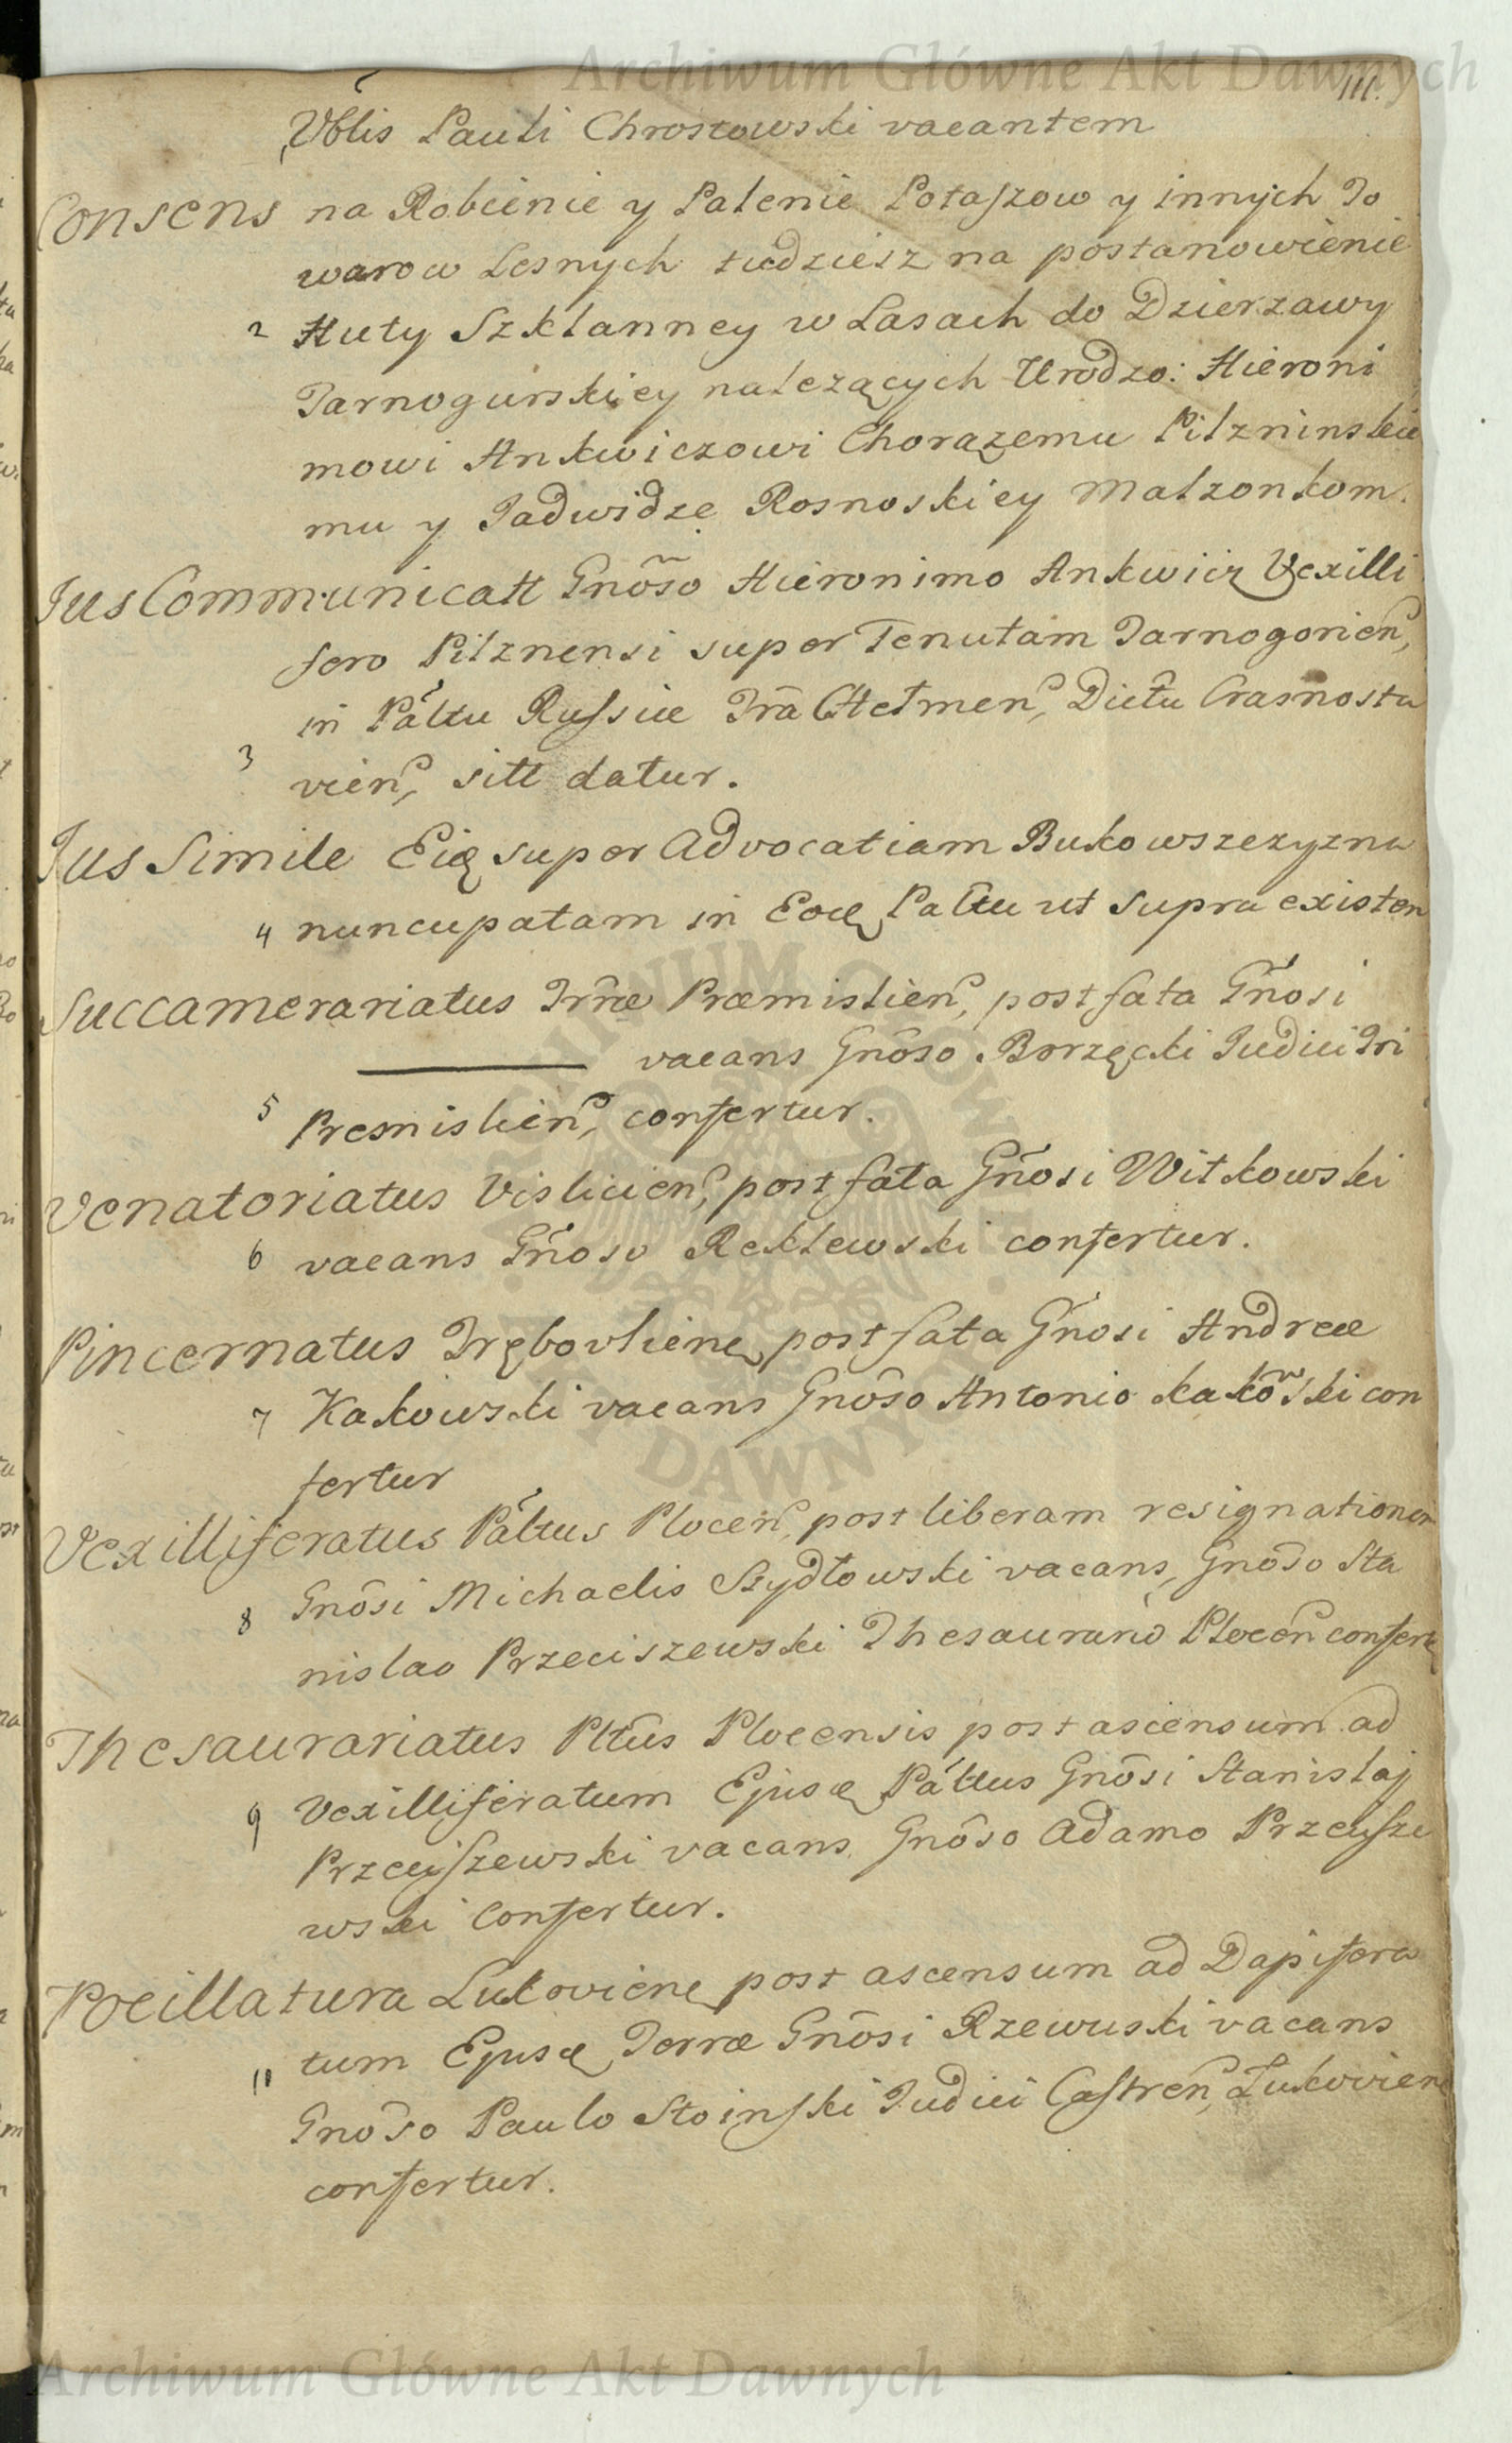 Archiwum Główne Akt Dawnych
111.
Vblis Pauli Chrostowski vacantem
Consens na Robienie y Palenie Potaszow y innych To
warow Lesnych tudziesz na postanowienie
2 Huty Szklanney w Lasach do Dzierzawy
Tarnogurskiey nalezących Urodzo: Hieroni
mowi Ankwiczowi Chorązemu Pilzninskie
mu y Jadwidze Rosnoskiey Malzonkom.
Jus Communicatt Gnõso Hieronimo Ankwicz Vexilli
fero Pilznensi super Tenutam Tarnogorien,
in Páltu Russiæ Trã Chelmen, Dictu Crasnosta
3 vien, sitt datur.
Jus Simile Eię super Advocatiam Bukowszczyzna
4 nuncupatam in Eoę Palttu ut supra existen
Succamerariatus Trræ Præmislien, post fata Gñosi
vacans Gnôso Borzęcki Judici Tri
5 Premislien, confertur.
Venatoriatus Vislicien, post fata Gñosi Witkowski
6 vacans Gñoso Reklewski confertur.
Pincernatus TręboVliene, post fata Gñosi Andreæ
7 Kakowski vacans Gnôso Antonio Kakôwski con
fertur
Vexilliferatus Páltus Plocen, post liberam resignationem
Gnôsi Michaelis Szydłowski vacans, Gnôso Sta
8 nislao Przeciszewski Thesaurario Plocen confert
Thesaurariatus Pltus Plocensis post ascensum ad
9 Vexilliferatum Ejusę Páltus Gnôsi Stanislaj
Przeciszewski vacans Gnôso Adamo Przecisze
wski Confertur.
Pocillatura Lukoviene, post ascensum ad Dapifera
10 tum Ejusę Terræ Gnôsi Rzewuski vacans
Gnoso Paulo Stoinski Judici Castren, Lukovien
confertur.
Archiwum Główne Akt Dawnych